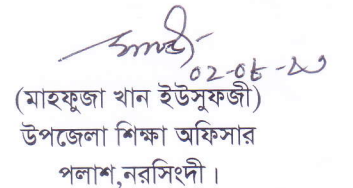 (মাহফুজা খান ইউসুফজী)
উপজেলা শিক্ষা অফিসার
পলাশ,নরসিংদী।